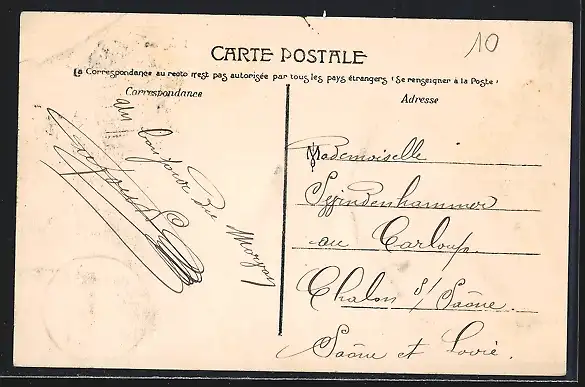 10
CARTE POSTALE
La Correspondance au recto n'est pas autorisée par tous les pays étrangers (Se renseigner à la Poste)
Correspondance
un bonjour de
Adresse
Mademoiselle
au Carloup.
Chalon s/ Saône.
Saône et Loire.